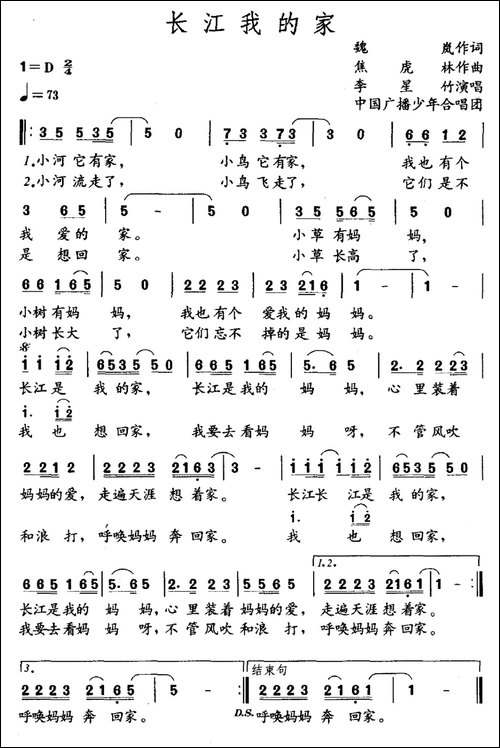 长江我的家
魏 岚作词
1=D 2/4 焦 虎 林作曲
♩=73 李 星 竹演唱
中国广播少年合唱团
‖: 3 5 5 3 5 | 5 0 | 7 3 3 7 3 | 5 0 | 6 6 1 2 |
1.小河 它有家, 小鸟 它有家, 我也 有个
2.小河 流走了, 小鸟 飞走了, 它们 是不
3 6 5 | 5 - | 5 0 | 3 5 5 6 5 |
我 爱的 家。 小草 有妈 妈,
是 想回 家。 小草 长高 了,
6 6 1 6 5 | 5 0 | 2 2 2 3 | 2 3 2 1 6 | 1 - | 1 - |
小树 有妈 妈, 我也 有个 爱我的 妈妈。
小树 长大 了, 它们 忘不 掉的是 妈妈。
i i i 2 | 6 5 3 5 5 0 | 6 6 5 1 6 5 | 5. 6 5 | 2. 2 2 3 |
长江是 我 的家, 长江是我的 妈 妈, 心 里装着
i. i 2
我 也 想回家, 我要去看妈 妈 呀, 不 管风吹
2 2 1 2 | 2 2 2 3 | 2 2 1 6 3 | 3 - | i i i i i 2 | 6 5 3 5 5 0 |
妈妈的爱, 走遍天涯 想着家。 长江长 江是 我 的家,
i. i 2
和浪 打, 呼唤妈妈 奔 回家。 我 也 想回家,
1.2.
6 6 5 1 6 5 | 5. 6 5 | 2. 2 2 3 | 2 2 1 2 | 2 2 2 3 2 1 6 1 | 1 - :‖
长江是我的 妈 妈, 心 里 装着 妈妈的爱, 走遍天涯想着家。
我要去看妈 妈 呀, 不 管风吹 和浪 打, 呼唤妈妈奔回家。
3. 结束句
2 2 2 3 | 2 2 1 6 5 | 5 - :‖ 2 2 2 3 | 2 2 1 6 1 | 1 - ‖
呼唤妈妈 奔 回家。 D.S. 呼唤妈妈 奔 回家。